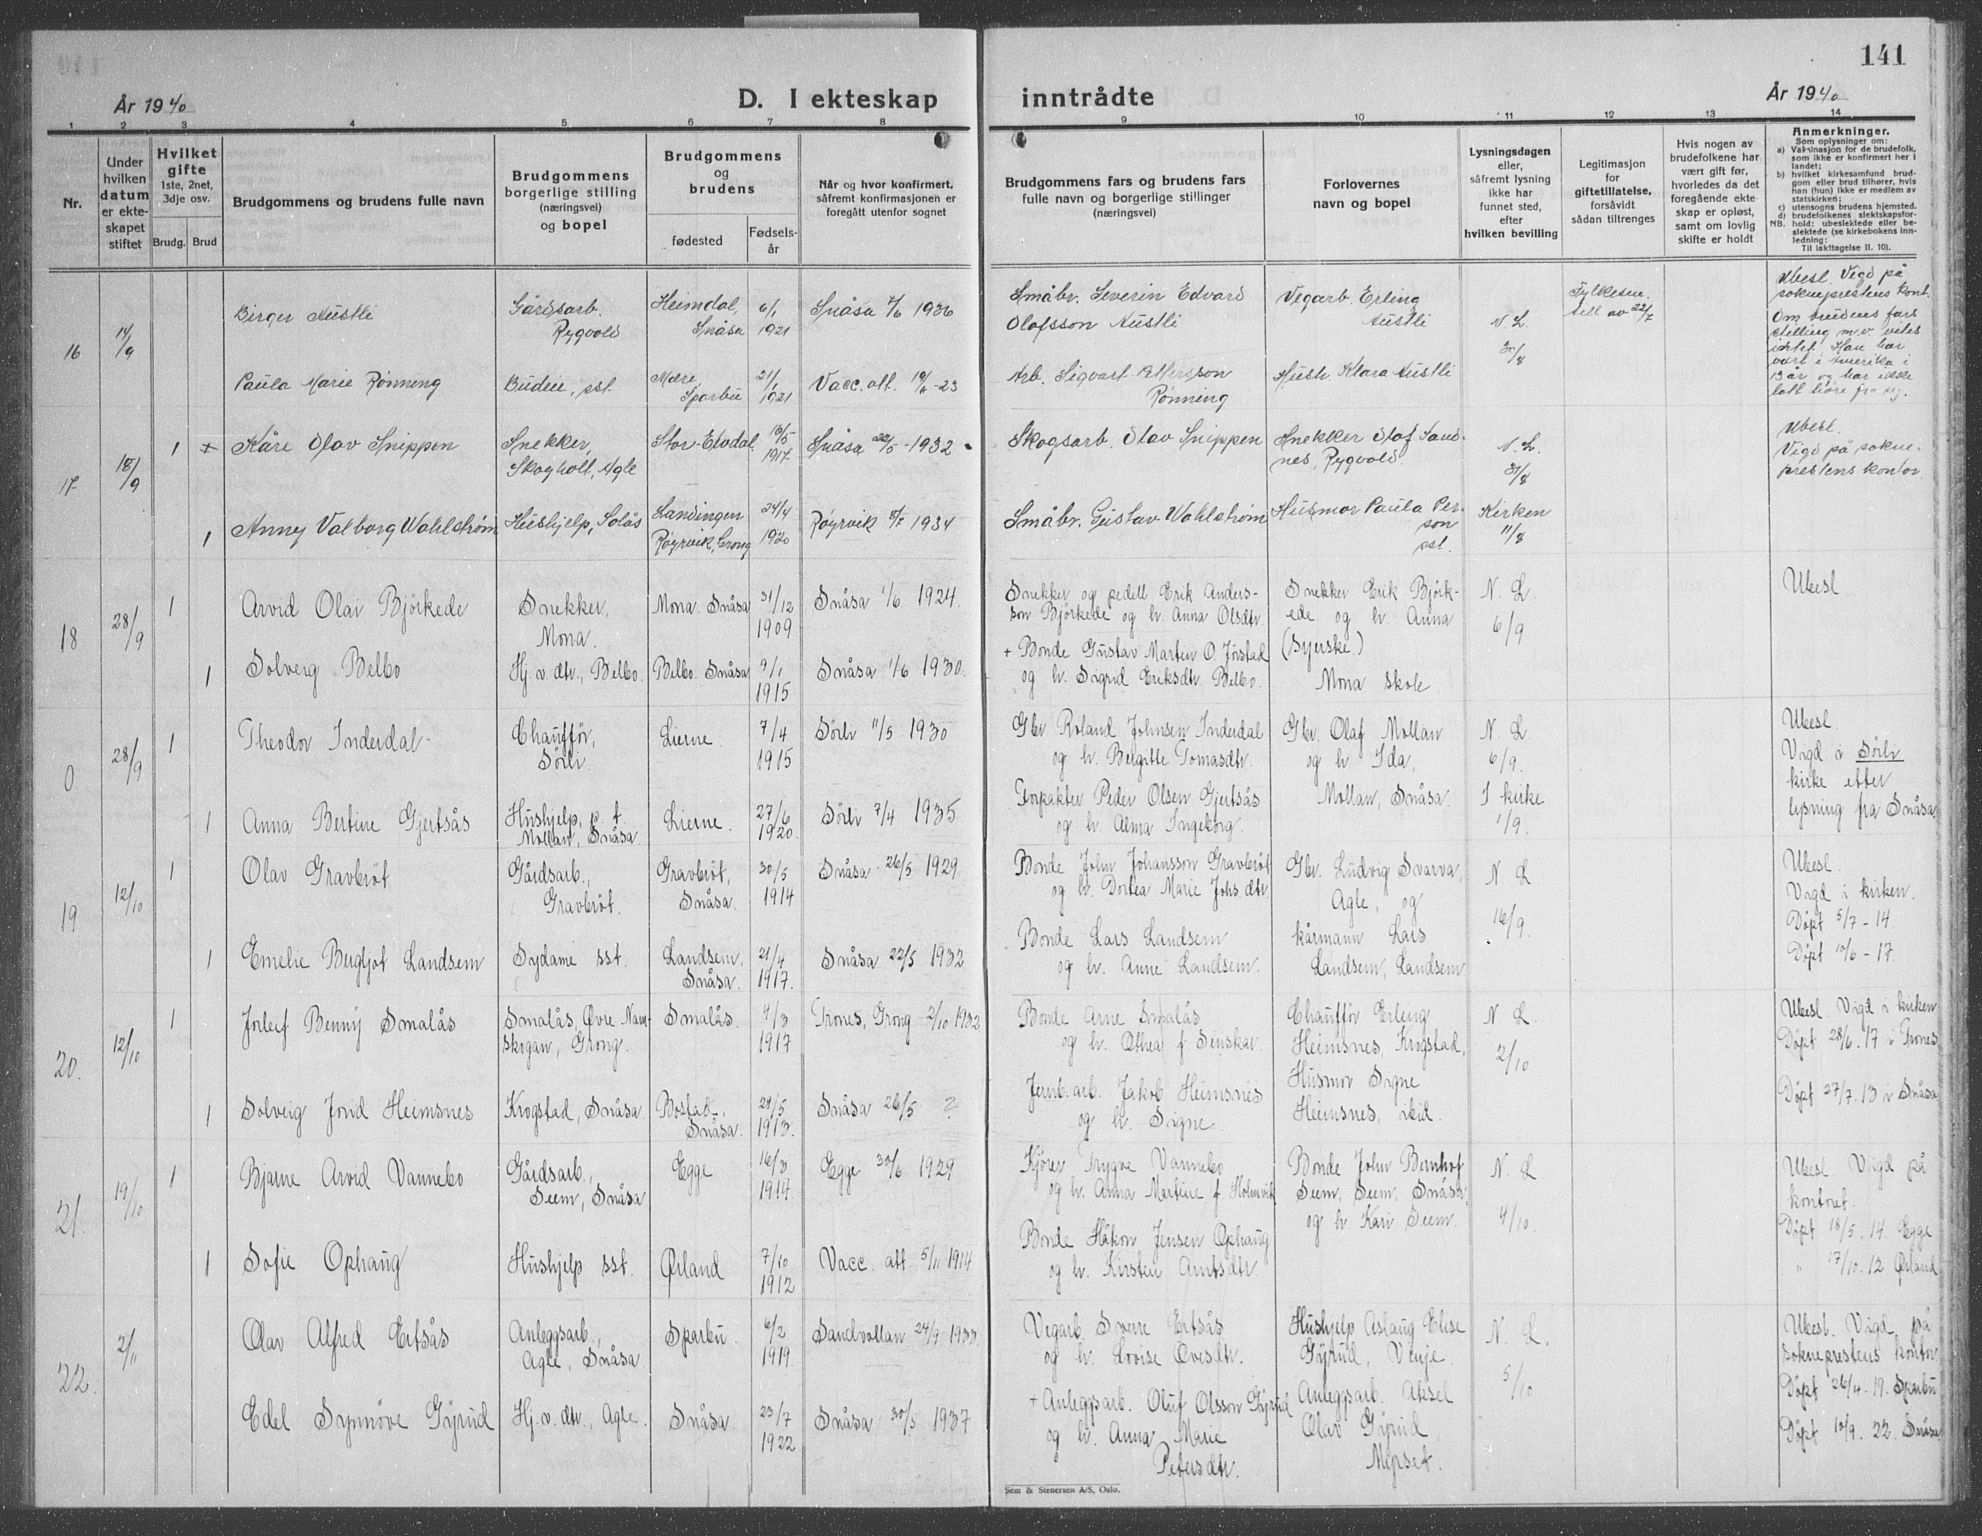 141
År 1940
D. I ekteskap
inntrådte
År 1940
1 2 3 4 5 6 7 8 9 10 11 12 13 14
Nr.
Under
hvilken
datum
er ekte-
skapet
stiftet
Hvilket
gifte
1ste, 2net,
3dje osv.
Brudg. Brud
Brudgommens og brudens fulle navn
Brudgommens
borgerlige stilling
(næringsvei)
og bopel
Brudgommens
og
brudens
fødested
Fødsels-
år
Når og hvor konfirmert,
såfremt konfirmasjonen er
foregått utenfor sognet
Brudgommens fars og brudens fars
fulle navn og borgerlige stillinger
(næringsvei)
Forlovernes
navn og bopel
Lysningsdagen
eller,
såfremt lysning
ikke har
funnet sted,
efter
hvilken bevilling
Legitimasjon
for
giftetillatelse,
forsåvidt
sådan tiltrenges
Hvis nogen av
brudefolkene har
vært gift før,
hvorledes da det
foregående ekte-
skap er opløst,
samt om lovlig
skifte er holdt
Anmerkninger.
Som oplysninger om:
a) Vaksinasjon for de brudefolk,
som ikke er konfirmert her i
landet;
b) hvilket kirkesamfund brud-
gom eller brud tilhører, hvis
han (hun) ikke er medlem av
statskirken;
c) utensogns brudens hjemsted.
d) brudefolkenes slektskapsfor-
NB. hold: ubeslektede eller be-
slektede (se kirkebokens inn-
ledning:
Til iakttagelse II. 10).
16
14/9
Birger Austli
Gårdsarb.
Rygvold
Heimdal,
Snåsa
6/1
1921
Snåsa 7/6 1936
Småbr. Severin Edvard
Olafsson Austli
Vegarb. Erling
Austli
N. L.
30/8
Fylkesm.
till av 22/7
Ubesl. Vigd på
sokneprestens kont.
Om brudens fars
stilling m.v. vites
intet. Han har
vært i Amerika i
13 år og har ikke
latt høre fra seg.
Paula Marie Rønning
Budeie, sst.
Mære,
Sparbu
21/1
1921
Vacc. att. 19/6-23
Arb. Sigvart Petterson
Rønning
Hustr. Klara Austli
17
18/9
1 +
Kåre Olav Snippen
Snekker,
Skogholt, Agle
Stor-Elvdal
16/5
1917
Snåsa 22/5-1932
Skogsarb. Olav Snippen
Snekker Olaf Sand-
nes, Rygvold.
N. L.
31/8
Ubesl.
Vigd på sokne-
prestens kontor
1
Anny Valborg Wahlstrøm
Hushjelp, Solås
Landingen
Røyrvik, Grong
24/4
1920
Røyrvik 8/7 1934
Småbr. Gustav Wahlstrøm
Husmor Paula Per-
son
sst.
Kirken
11/8
18
28/9
1
Arvid Olav Bjørkede
Snekker,
Mona.
Mona. Snåsa
31/12
1909
Snåsa 1/6 1924.
Snekker og pedell Erik Anders-
son Bjørkede og hv. Anna Olsdtr.
Snekker Erik Bjørk-
ede og hv. Anna
(Syerske.)
Mona skole.
N. L.
6/9
Ubesl.
1
Solveig Belbo
Hj. v. dtr., Belbo.
Belbo. Snåsa
9/1
1915
Snåsa 1/6 1930.
+ Bonde Gustav Marten O. Jørstad
og hv. Sigrid Eriksdtr. Belbo.
0
28/9
1
Theodor Inderdal
Chauffør,
Sørli.
Lierne.
7/4
1915
Sørli 11/5 1930
Gbr. Roland Johnsen Inderdal
og hv. Bergitte Tomasdtr.
Gbr. Olaf Mollan
og hv. Ida,
Mollan, Snåsa.
N. L.
6/9.
I kirke
1/9.
Ubesl.
Vigd i Sørli
kirke efter
lysning fra Snåsa
1
Anna Bertine Gjertsås
Hushjelp, p. t.
Mollan, Snåsa
Lierne.
27/6
1920.
Sørli 7/4 1935
Forpakter Peder Olsen Gjertsås
og hv. Alma Ingeborg.
19
12/10
1
Olav Gravbrøt
Gårdsarb.,
Gravbrøt.
Gravbrøt,
Snåsa.
30/5
1914
Snåsa 26/5 1929.
Bonde John Johansson Gravbrøt
og hv. Dortea Marie Johs.dtr.
Gbr. Ludvig Svarva,
Agle, og
kårmann Lars
Landsem, Landsem
N L
16/9.
Ubesl.
Vigd i kirken.
Døpt 5/7-14.
Døpt 10/6-17.
1
Emelie Bergljot Landsem
Sydame sst.
Landsem,
Snåsa.
21/4
1917.
Snåsa 22/5 1932
Bonde Lars Landsem
og hv. Anne Landsem.
20.
12/10
1
Jorleif Benny Smalås
Smalås, Øvre Nam-
skogan, Grong.
Smalås.
4/3
1917
Trones, Grong 2/10 1932
Bonde Arne Smalås
og hv. Othea f. Senskar.
Chauffør Erling
Heimsnes, Krogstad,
Husmor Signe
Heimsnes, ibid.
N L.
2/10
Ubesl. Vigd i kirken
Døpt 28/6. 17 i Trones.
Døpt 27/7. 13 i Snåsa
1
Solveig Jorid Heimsnes
Krogstad, Snåsa.
Bostad-,
Snåsa.
29/5
1913.
Snåsa 26/5 ?
Jernb.arb. Jakob Heimsnes
og hv. Signe.
21.
19/10
1
Bjarne Arvid Vannebo
Gårdsarb.,
Seem, Snåsa
Egge
16/3
1914.
Egge 30/6 1929
Kjører Trygve Vannebo
og hv. Anna Martine f. Holmvik
Bonde John Bernhof
Seem, Seem, Snåsa,
og hv Kari Seem.
N. L.
4/10.
Ubesl. Vigd på
kontoret.
Døpt 18/5. 14. Egge
" 17/10. 12 Ørland
1
Sofie Ophaug
Hushjelp sst.
Ørland
7/10
1912
Vacc. att. 5/11 1914
Bonde Håkon Jensen Ophaug
og hv. Kirsten Arntsdtr.
22.
2/11
Olav Alfred Ertsås
Anleggsarb.,
Agle, Snåsa.
Sparbu.
6/2
1919.
Sandvollan 24/9 1933
Vegarb. Sverre Ertsås
og hv. Lovise Ovesdtr.
Hushjelp Aslaug Elise
Gyrud, Vinje.
Anleggsarb. Aksel
Olav Gyrud,
Mepset.
N. L.
5/10
Ubesl. Vigd på
sokneprestens kontor
Døpt 26/4-19. Sparbu
Døpt 10/9. 22. Snåsa
Edel Synnøve Gyrud
Hj. v. dtr., Agle.
Snåsa.
23/7
1922
Snåsa 30/5 1937
+ Anleggsarb. Oluf Olsson Gyrud
og hv. Anna Marie
Petersdtr.
Sem & Stenersen A/S, Oslo.